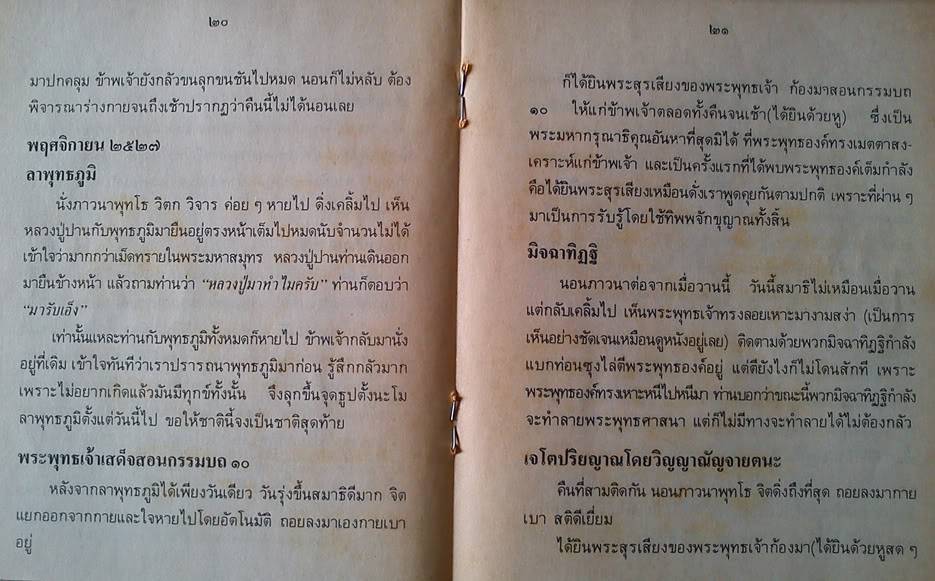 ๒๐
มาปกคลุม ข้าพเจ้ายังกลัวขนลุกขนชันไปหมด นอนก็ไม่หลับ ต้อง
พิจารณาร่างกายจนถึงเช้าปรากฏว่าคืนนี้ไม่ได้นอนเลย
พฤศจิกายน ๒๕๒๗
ลาพุทธภูมิ
นั่งภาวนาพุทโธ วิตก วิจาร ค่อย ๆ หายไป ดิ่งเคลิ้มไป เห็น
หลวงปู่ปานกับพุทธภูมิมายืนอยู่ตรงหน้าเต็มไปหมดนับจำนวนไม่ได้
เข้าใจว่ามากกว่าเม็ดทรายในพระมหาสมุทร หลวงปู่ปานท่านเดินออก
มายืนข้างหน้า แล้วถามท่านว่า “หลวงปู่มาทำไมครับ” ท่านก็ตอบว่า
“มารับเอ็ง”
เท่านั้นแหละท่านกับพุทธภูมิทั้งหมดก็หายไป ข้าพเจ้ากลับมานั่ง
อยู่ที่เดิม เข้าใจทันทีว่าเราปรารถนาพุทธภูมิมาก่อน รู้สึกกลัวมาก
เพราะไม่อยากเกิดแล้วมันมีทุกข์ทั้งนั้น จึงลุกขึ้นจุดธูปตั้งนะโม
ลาพุทธภูมิตั้งแต่วันนี้ไป ขอให้ชาตินี้จงเป็นชาติสุดท้าย
พระพุทธเจ้าเสด็จสอนกรรมบถ ๑๐
หลังจากลาพุทธภูมิได้เพียงวันเดียว วันรุ่งขึ้นสมาธิดีมาก จิต
แยกออกจากกายและใจหายไปโดยอัตโนมัติ ถอยลงมาเองกายเบา
อยู่
๒๑
ก็ได้ยินพระสุรเสียงของพระพุทธเจ้า ก้องมาสอนกรรมบถ
๑๐ ให้แก่ข้าพเจ้าตลอดทั้งคืนจนเช้า(ได้ยินด้วยหู) ซึ่งเป็น
พระมหากรุณาธิคุณอันหาที่สุดมิได้ ที่พระพุทธองค์ทรงเมตตาสง-
เคราะห์แก่ข้าพเจ้า และเป็นครั้งแรกที่ได้พบพระพุทธองค์เต็มกำลัง
คือได้ยินพระสุรเสียงเหมือนดั่งเราพูดคุยกันตามปกติ เพราะที่ผ่าน ๆ
มาเป็นการรับรู้โดยใช้ทิพพจักขุญาณทั้งสิ้น
มิจฉาทิฏฐิ
นอนภาวนาต่อจากเมื่อวานนี้ วันนี้สมาธิไม่เหมือนเมื่อวาน
แต่กลับเคลิ้มไป เห็นพระพุทธเจ้าทรงลอยเหาะมางามสง่า (เป็นการ
เห็นอย่างชัดเจนเหมือนดูหนังอยู่เลย) ติดตามด้วยพวกมิจฉาทิฏฐิกำลัง
แบกท่อนซุงไล่ตีพระพุทธองค์อยู่ แต่ตียังไงก็ไม่โดนสักที เพราะ
พระพุทธองค์ทรงเหาะหนีไปหนีมา ท่านบอกว่าขณะนี้พวกมิจฉาทิฏฐิกำลัง
จะทำลายพระพุทธศาสนา แต่ก็ไม่มีทางจะทำลายได้ไม่ต้องกลัว
เจโตปริยญาณโดยวิญญาณัญจายตนะ
คืนที่สามติดกัน นอนภาวนาพุทโธ จิตดิ่งถึงที่สุด ถอยลงมากาย
เบา สติดีเยี่ยม
ได้ยินพระสุรเสียงของพระพุทธเจ้าก้องมา(ได้ยินด้วยหูสด ๆ